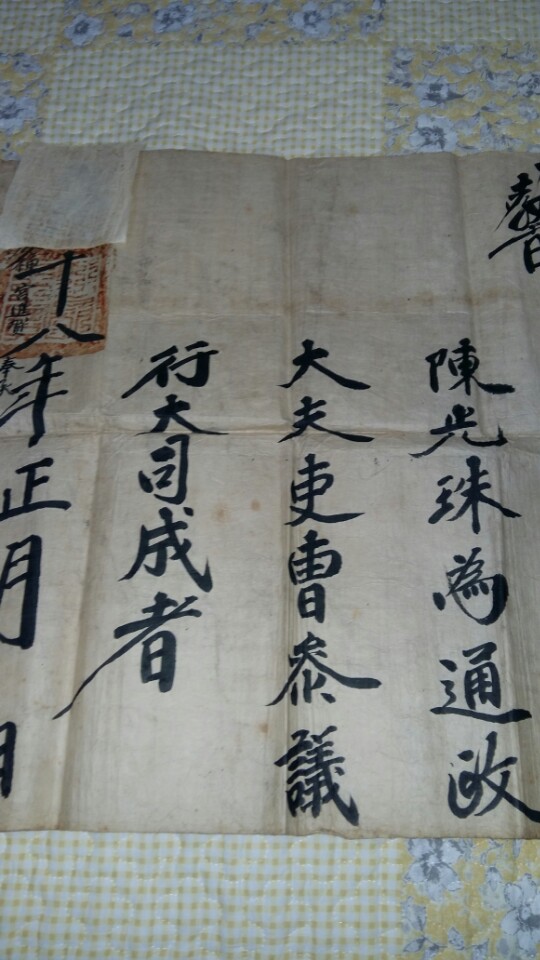 陳光珠為通政
大夫吏曹叅議
行大司成者
十八年正月